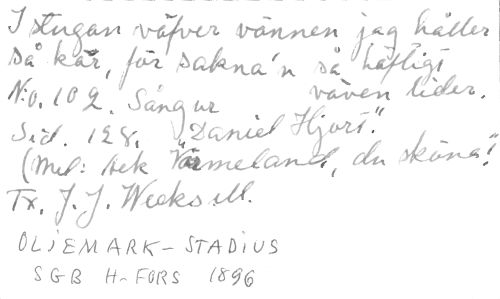 I stugan väfver vännen jag håller
så kär, för sakna'n så häftigt
väven lider.
No. 102. Sång ur
Sid. 128. "Daniel Hjort."
(Mel: Ack Värmeland, du sköna!)
Tr. J. J. Weeks ill.
OLJEMARK-STADIUS
SGB H-FORS 1896